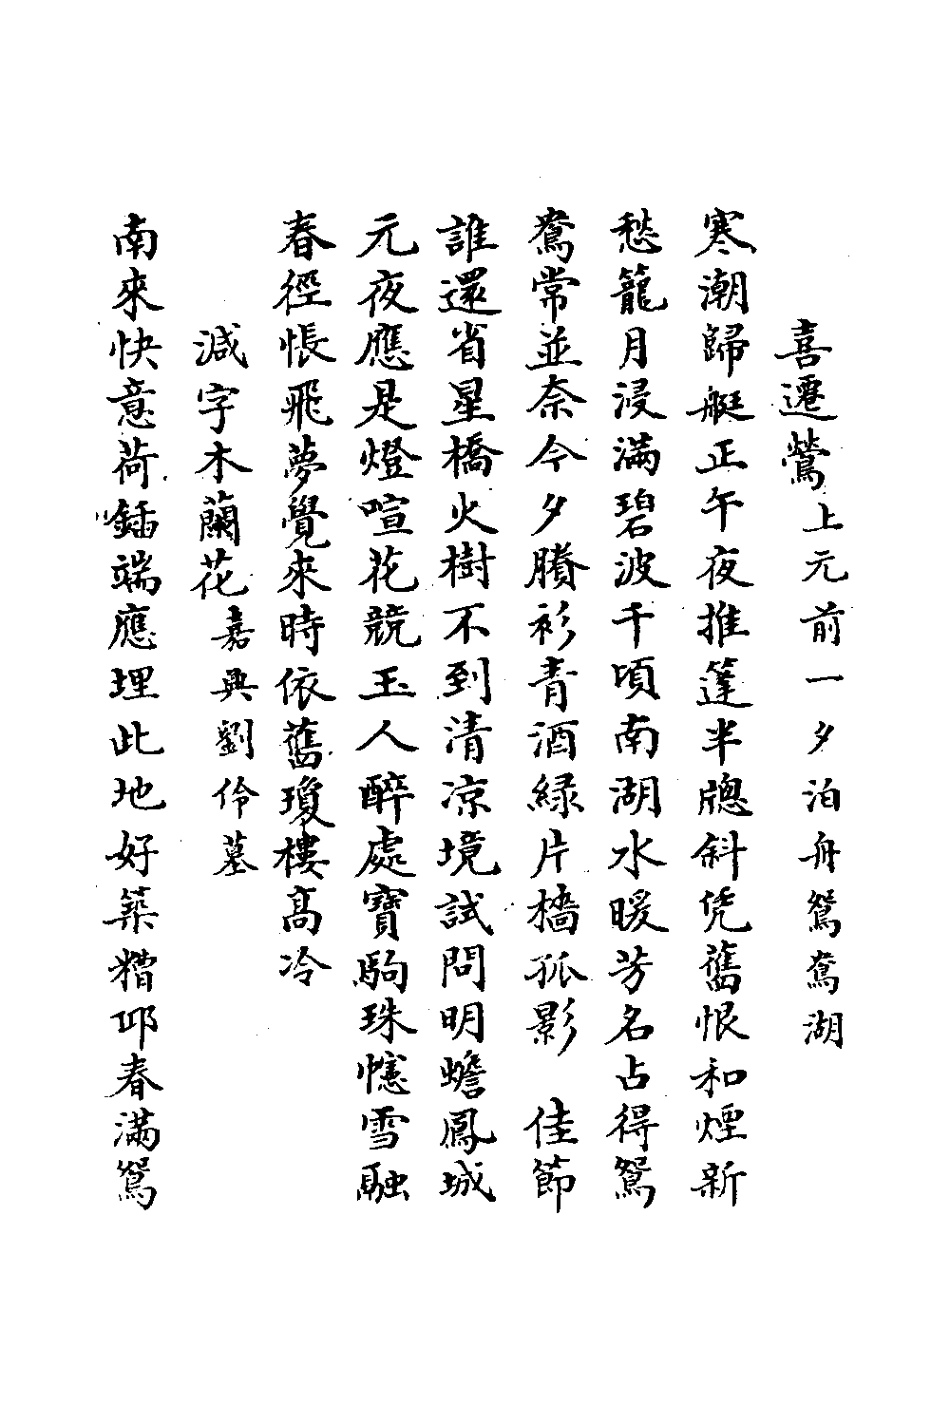 喜遷鶯上元前一夕泊舟鴛鴦湖
寒潮歸艇正午夜推篷半牕斜凭舊恨和煙新
愁籠月浸滿碧波千頃南湖水暖芳名占得鴛
鴦常並奈今夕賸衫青酒綠片檣孤影　佳節
誰還省星橋火樹不到清涼境試問明蟾鳳城
元夜應是燈喧花競玉人醉處寶駒珠幰雪融
春徑悵飛夢覺來時依舊瓊樓高冷
減字木蘭花嘉興劉伶墓
南來快意荷鍤端應埋此地好築糟邱春滿鴛